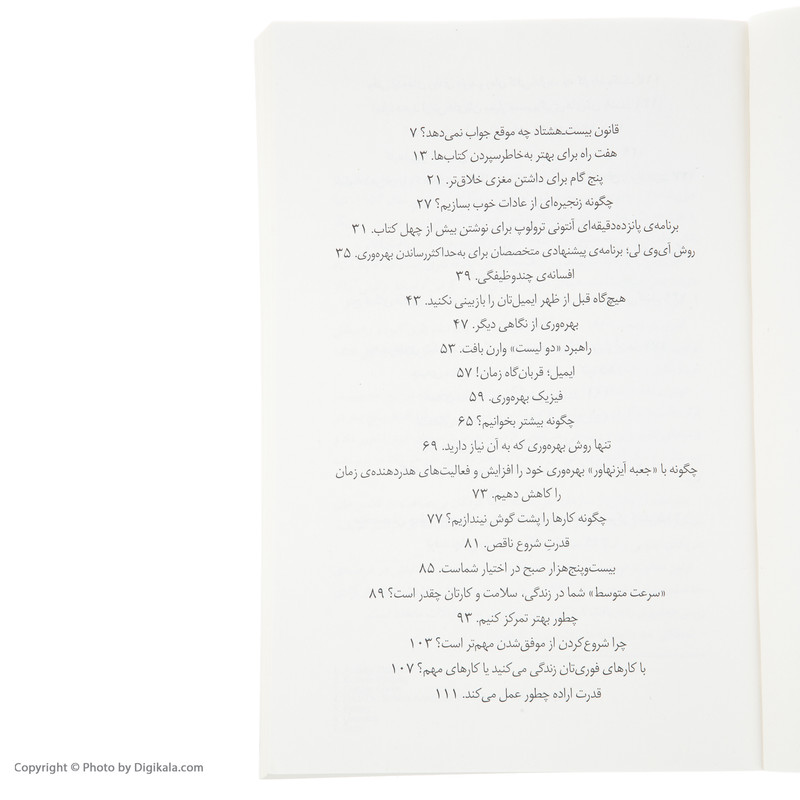 قانون بیست‌ـهشتاد چه موقع جواب نمی‌دهد؟ ۷
هفت راه برای بهتر به‌خاطرسپردن کتاب‌ها. ۱۳
پنج گام برای داشتن مغزی خلاق‌تر. ۲۱
چگونه زنجیره‌ای از عادات خوب بسازیم؟ ۲۷
برنامه‌ی پانزده‌دقیقه‌ای آنتونی ترولوپ برای نوشتن بیش از چهل کتاب. ۳۱
روش آی‌وی لی؛ برنامه‌ی پیشنهادی متخصصان برای به‌حداکثررساندن بهره‌وری. ۳۵
افسانه‌ی چندوظیفگی. ۳۹
هیچ‌گاه قبل از ظهر ایمیل‌تان را بازبینی نکنید. ۴۳
بهره‌وری از نگاهی دیگر. ۴۷
راهبرد «دو لیست» وارن بافت. ۵۳
ایمیل؛ قربان‌گاه زمان! ۵۷
فیزیک بهره‌وری. ۵۹
چگونه بیشتر بخوانیم؟ ۶۵
تنها روش بهره‌وری که به آن نیاز دارید. ۶۹
چگونه با «جعبه آیزنهاور» بهره‌وری خود را افزایش و فعالیت‌های هدردهنده‌ی زمان
را کاهش دهیم. ۷۳
چگونه کارها را پشت گوش نیندازیم؟ ۷۷
قدرتِ شروع ناقص. ۸۱
بیست‌وپنج‌هزار صبح در اختیار شماست. ۸۵
«سرعت متوسط» شما در زندگی، سلامت و کارتان چقدر است؟ ۸۹
چطور بهتر تمرکز کنیم. ۹۳
چرا شروع‌کردن از موفق‌شدن مهم‌تر است؟ ۱۰۳
با کارهای فوری‌تان زندگی می‌کنید یا کارهای مهم؟ ۱۰۷
قدرت اراده چطور عمل می‌کند. ۱۱۱
Copyright © Photo by Digikala.com